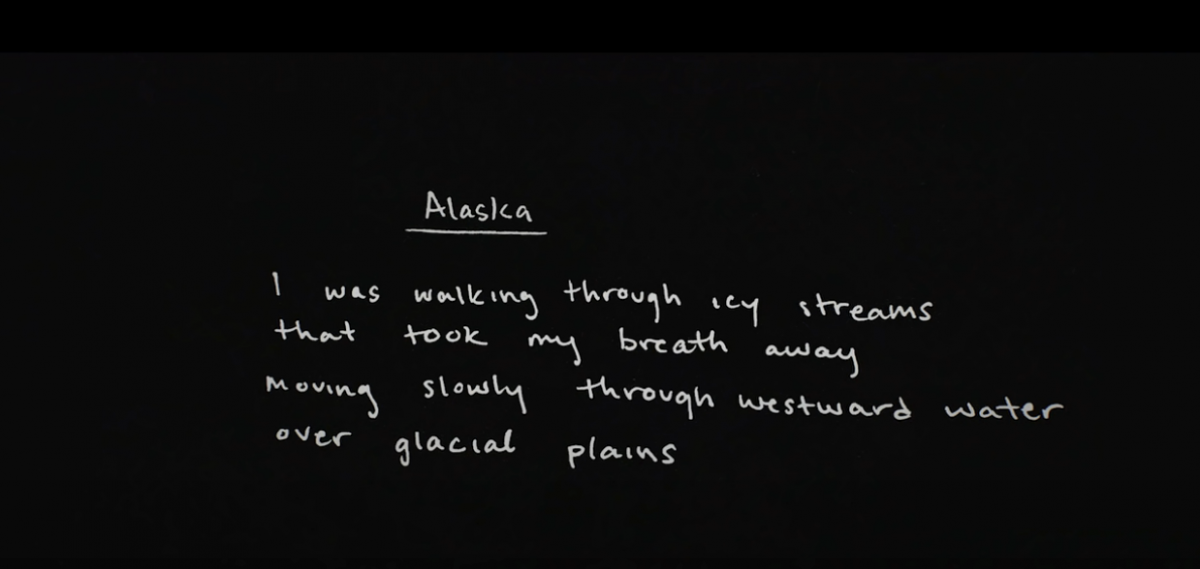 Alaska
I was walking through icy streams
that took my breath away
moving slowly through westward water
over glacial plains